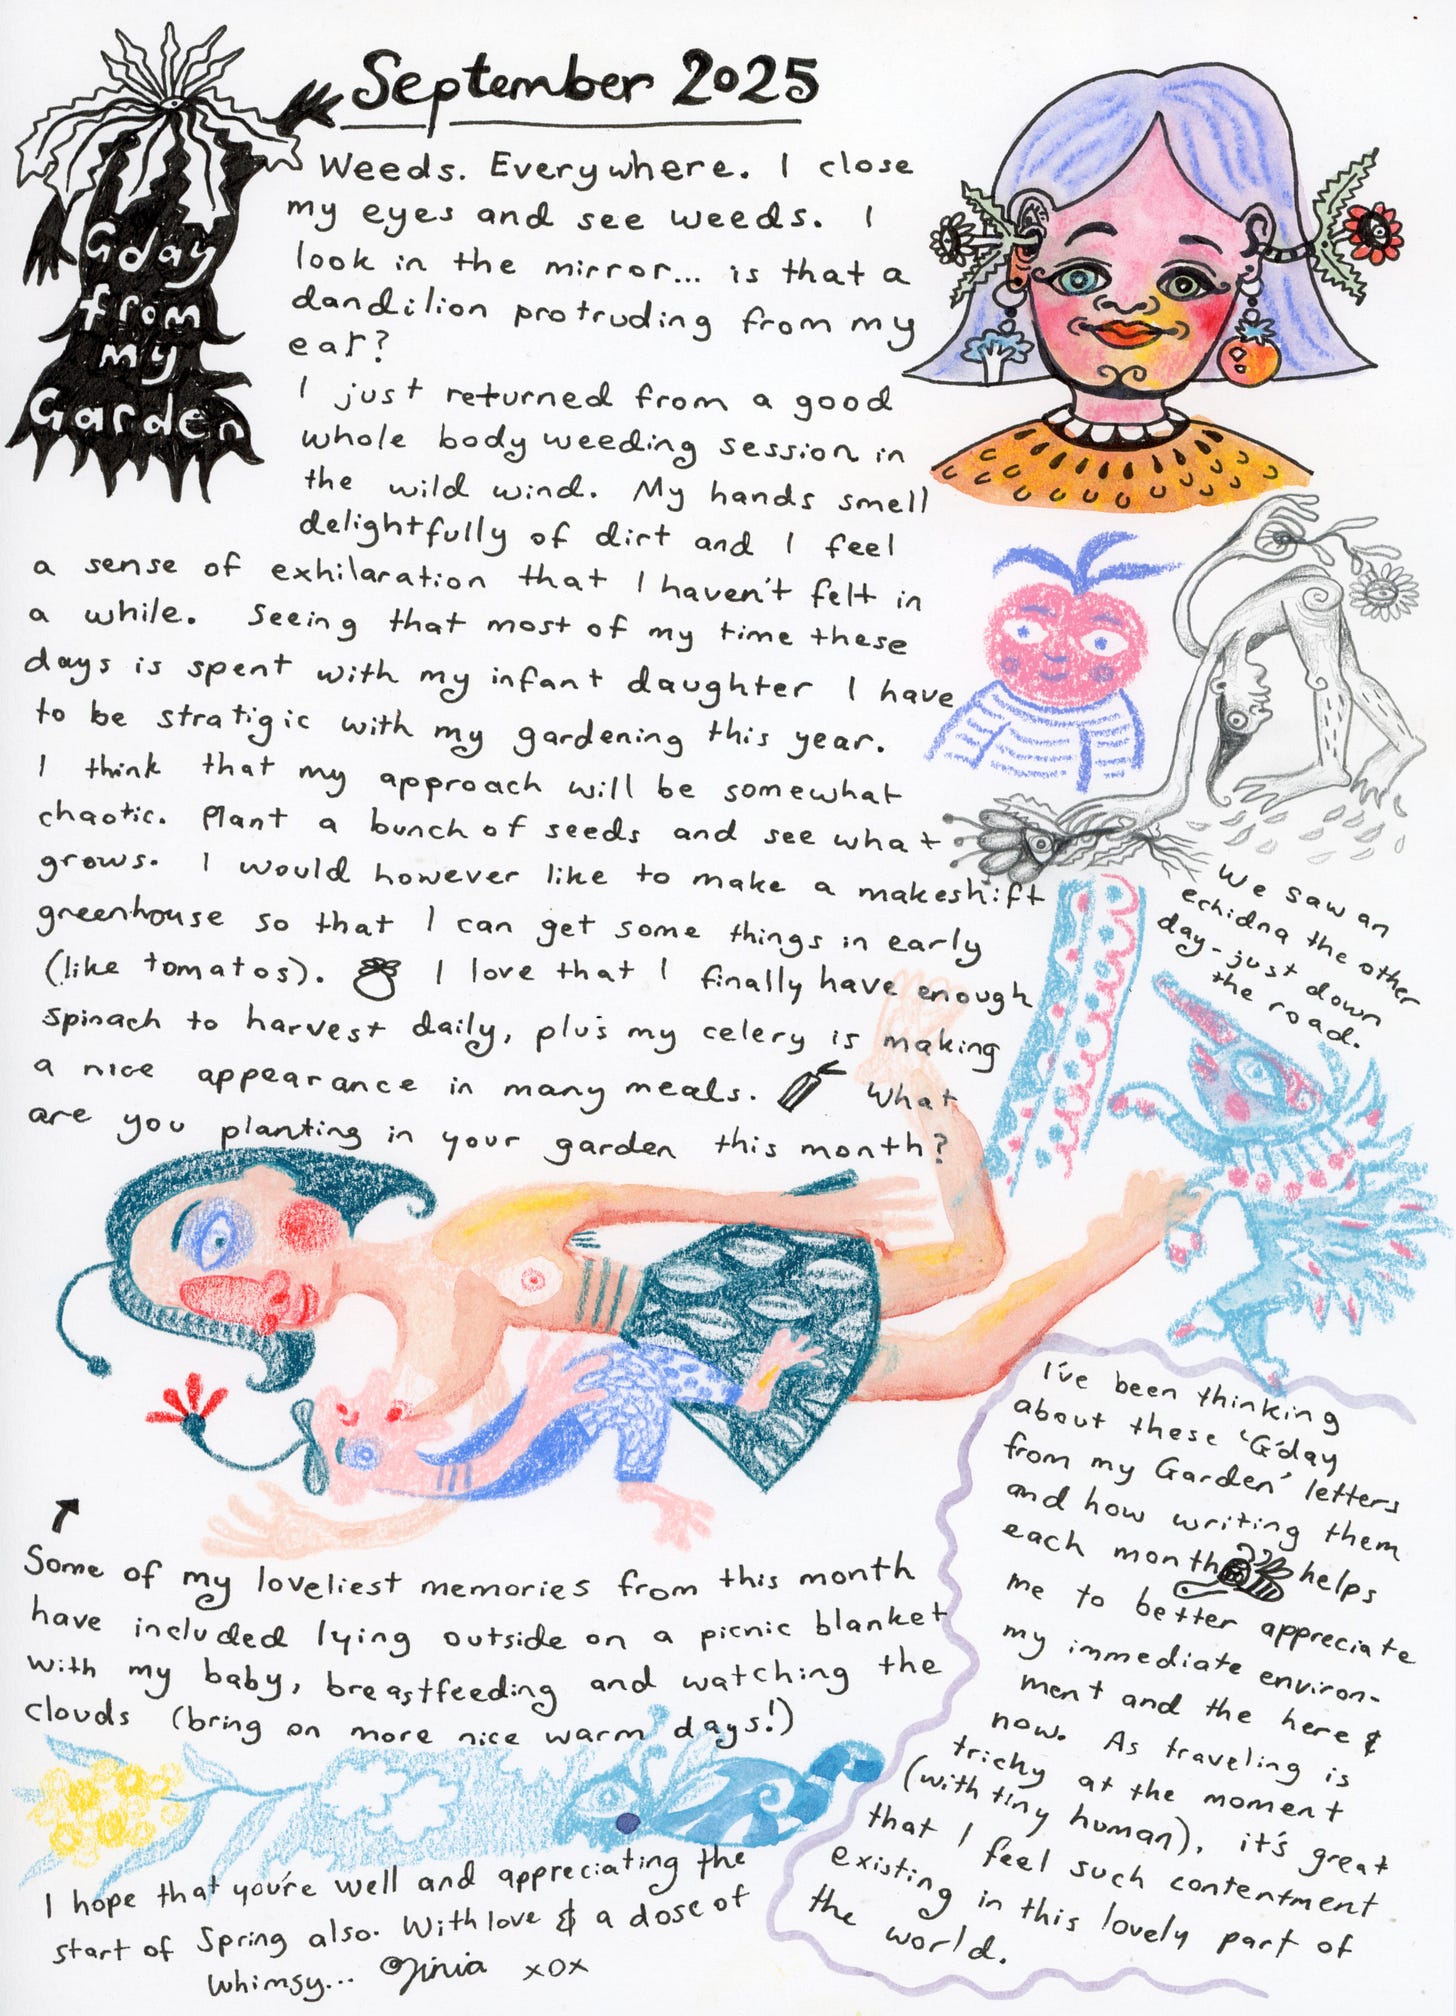 September 2025
Gday
from
my
Garden
Weeds. Everywhere. I close
my eyes and see weeds. I
look in the mirror... is that a
dandilion protruding from my
ear?
I just returned from a good
whole body weeding session in
the wild wind. My hands smell
delightfully of dirt and I feel
a sense of exhilaration that I haven't felt in
a while. Seeing that most of my time these
days is spent with my infant daughter I have
to be stratigic with my gardening this year.
I think that my approach will be somewhat
chaotic. Plant a bunch of seeds and see what
grows. I would however like to make a makeshift
greenhouse so that I can get some things in early
(like tomatos). I love that I finally have enough
spinach to harvest daily, plus my celery is making
a nice appearance in many meals. What
are you planting in your garden this month?
We saw an
echidna the other
day - just down
the road.
Some of my loveliest memories from this month
have included lying outside on a picnic blanket
with my baby, breastfeeding and watching the
clouds (bring on more nice warm days!)
I've been thinking
about these 'G'day
from my Garden' letters
and how writing them
each month helps
me to better appreciate
my immediate environ-
ment and the here &
now. As traveling is
tricky at the moment
(with tiny human), it's great
that I feel such contentment
existing in this lovely part of
the world.
I hope that you're well and appreciating the
start of Spring also. With love & a dose of
whimsy... xox